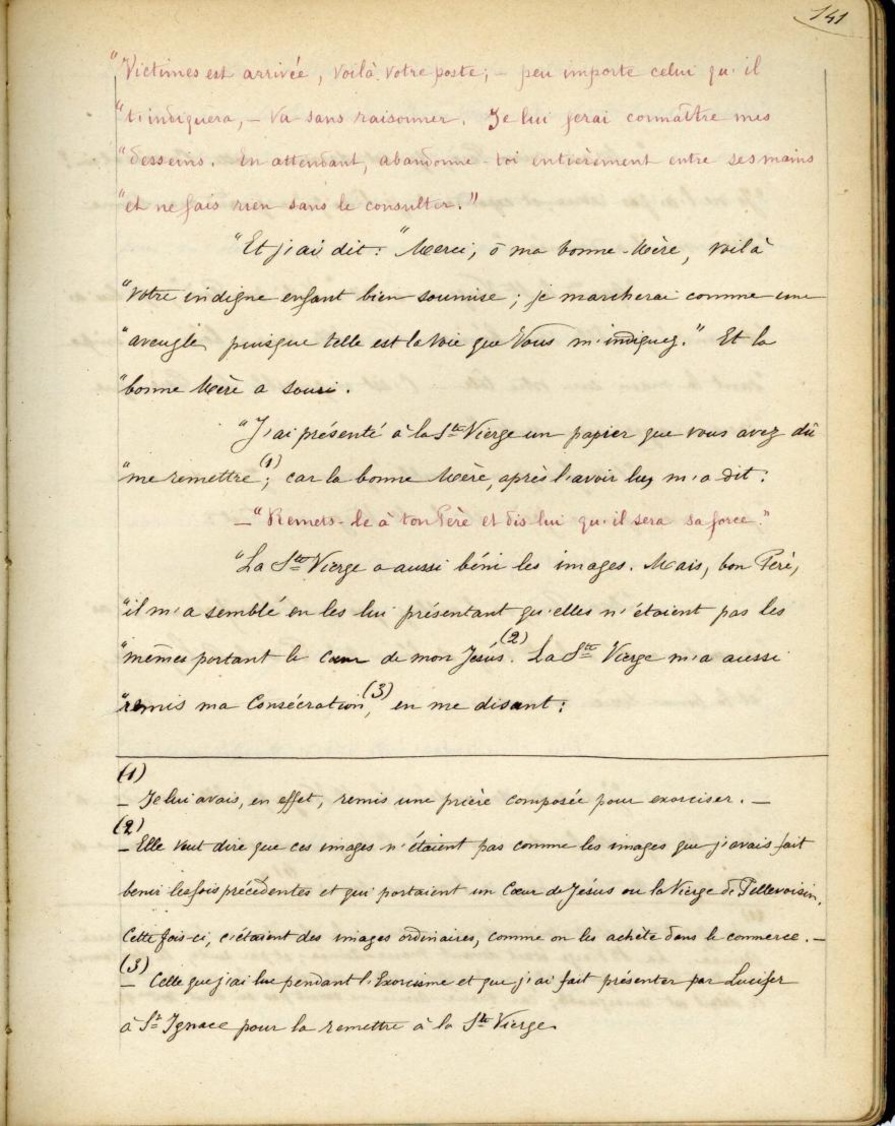 141
"Victimes est arrivée, voilà votre poste; – peu importe celui qu'il
"t'indiquera, – va sans raisonner. Je lui ferai connaître mes
"desseins. En attendant, abandonne-toi entièrement entre ses mains
"et ne fais rien sans le consulter."
"Et j'ai dit: "Merci, ô ma bonne Mère, voilà
"votre indigne enfant bien soumise; je marcherai comme une
"aveugle, puisque telle est la voie que Vous m'indiquez." Et la
"bonne Mère a souri.
"J'ai présenté à la Ste Vierge un papier que vous avez dû
"me remettre (1); car la bonne Mère, après l'avoir lu, m'a dit:
–"Remets-le à ton Père et dis lui qu'il sera sa force."
"La Ste Vierge a aussi béni les images. Mais, bon Père,
"il m'a semblé en les lui présentant qu'elles n'étaient pas les
"mêmes portant le Cœur de mon Jésus (2). La Ste Vierge m'a aussi
"remis ma Consécration (3), en me disant:
(1)
– Je lui avais, en effet, remis une prière composée pour exorciser. –
(2)
– Elle veut dire que ces images n'étaient pas comme les images que j'avais fait
benir les fois précédentes et qui portaient un Cœur de Jésus ou la Vierge de Pellevoisin.
Cette fois-ci, c'étaient des images ordinaires, comme on les achète dans le commerce. –
(3)
– Celle que j'ai lue pendant l'Exorcisme et que j'ai fait présenter par Lucifer
à St Ignace pour la remettre à la Ste Vierge.